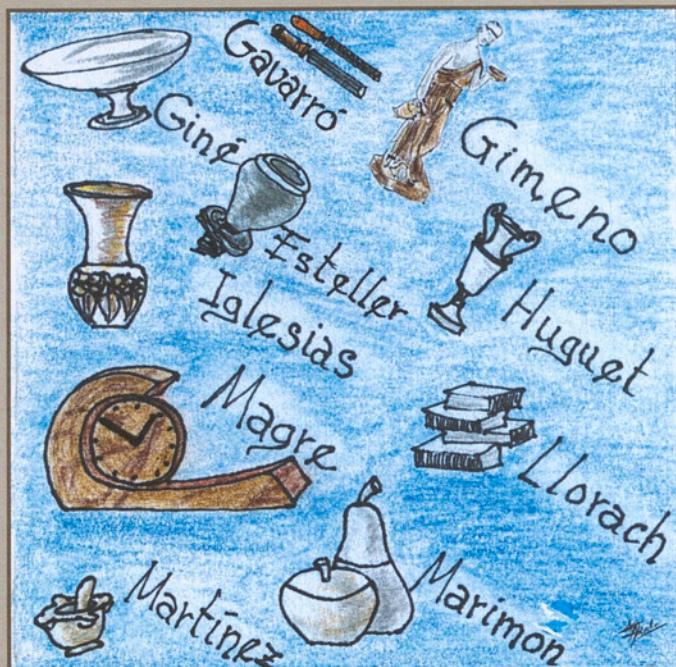 Gavarró
Giné
Gimeno
Esteller
Iglesias
Huguet
Magre
Llorach
Martínez
Marimon